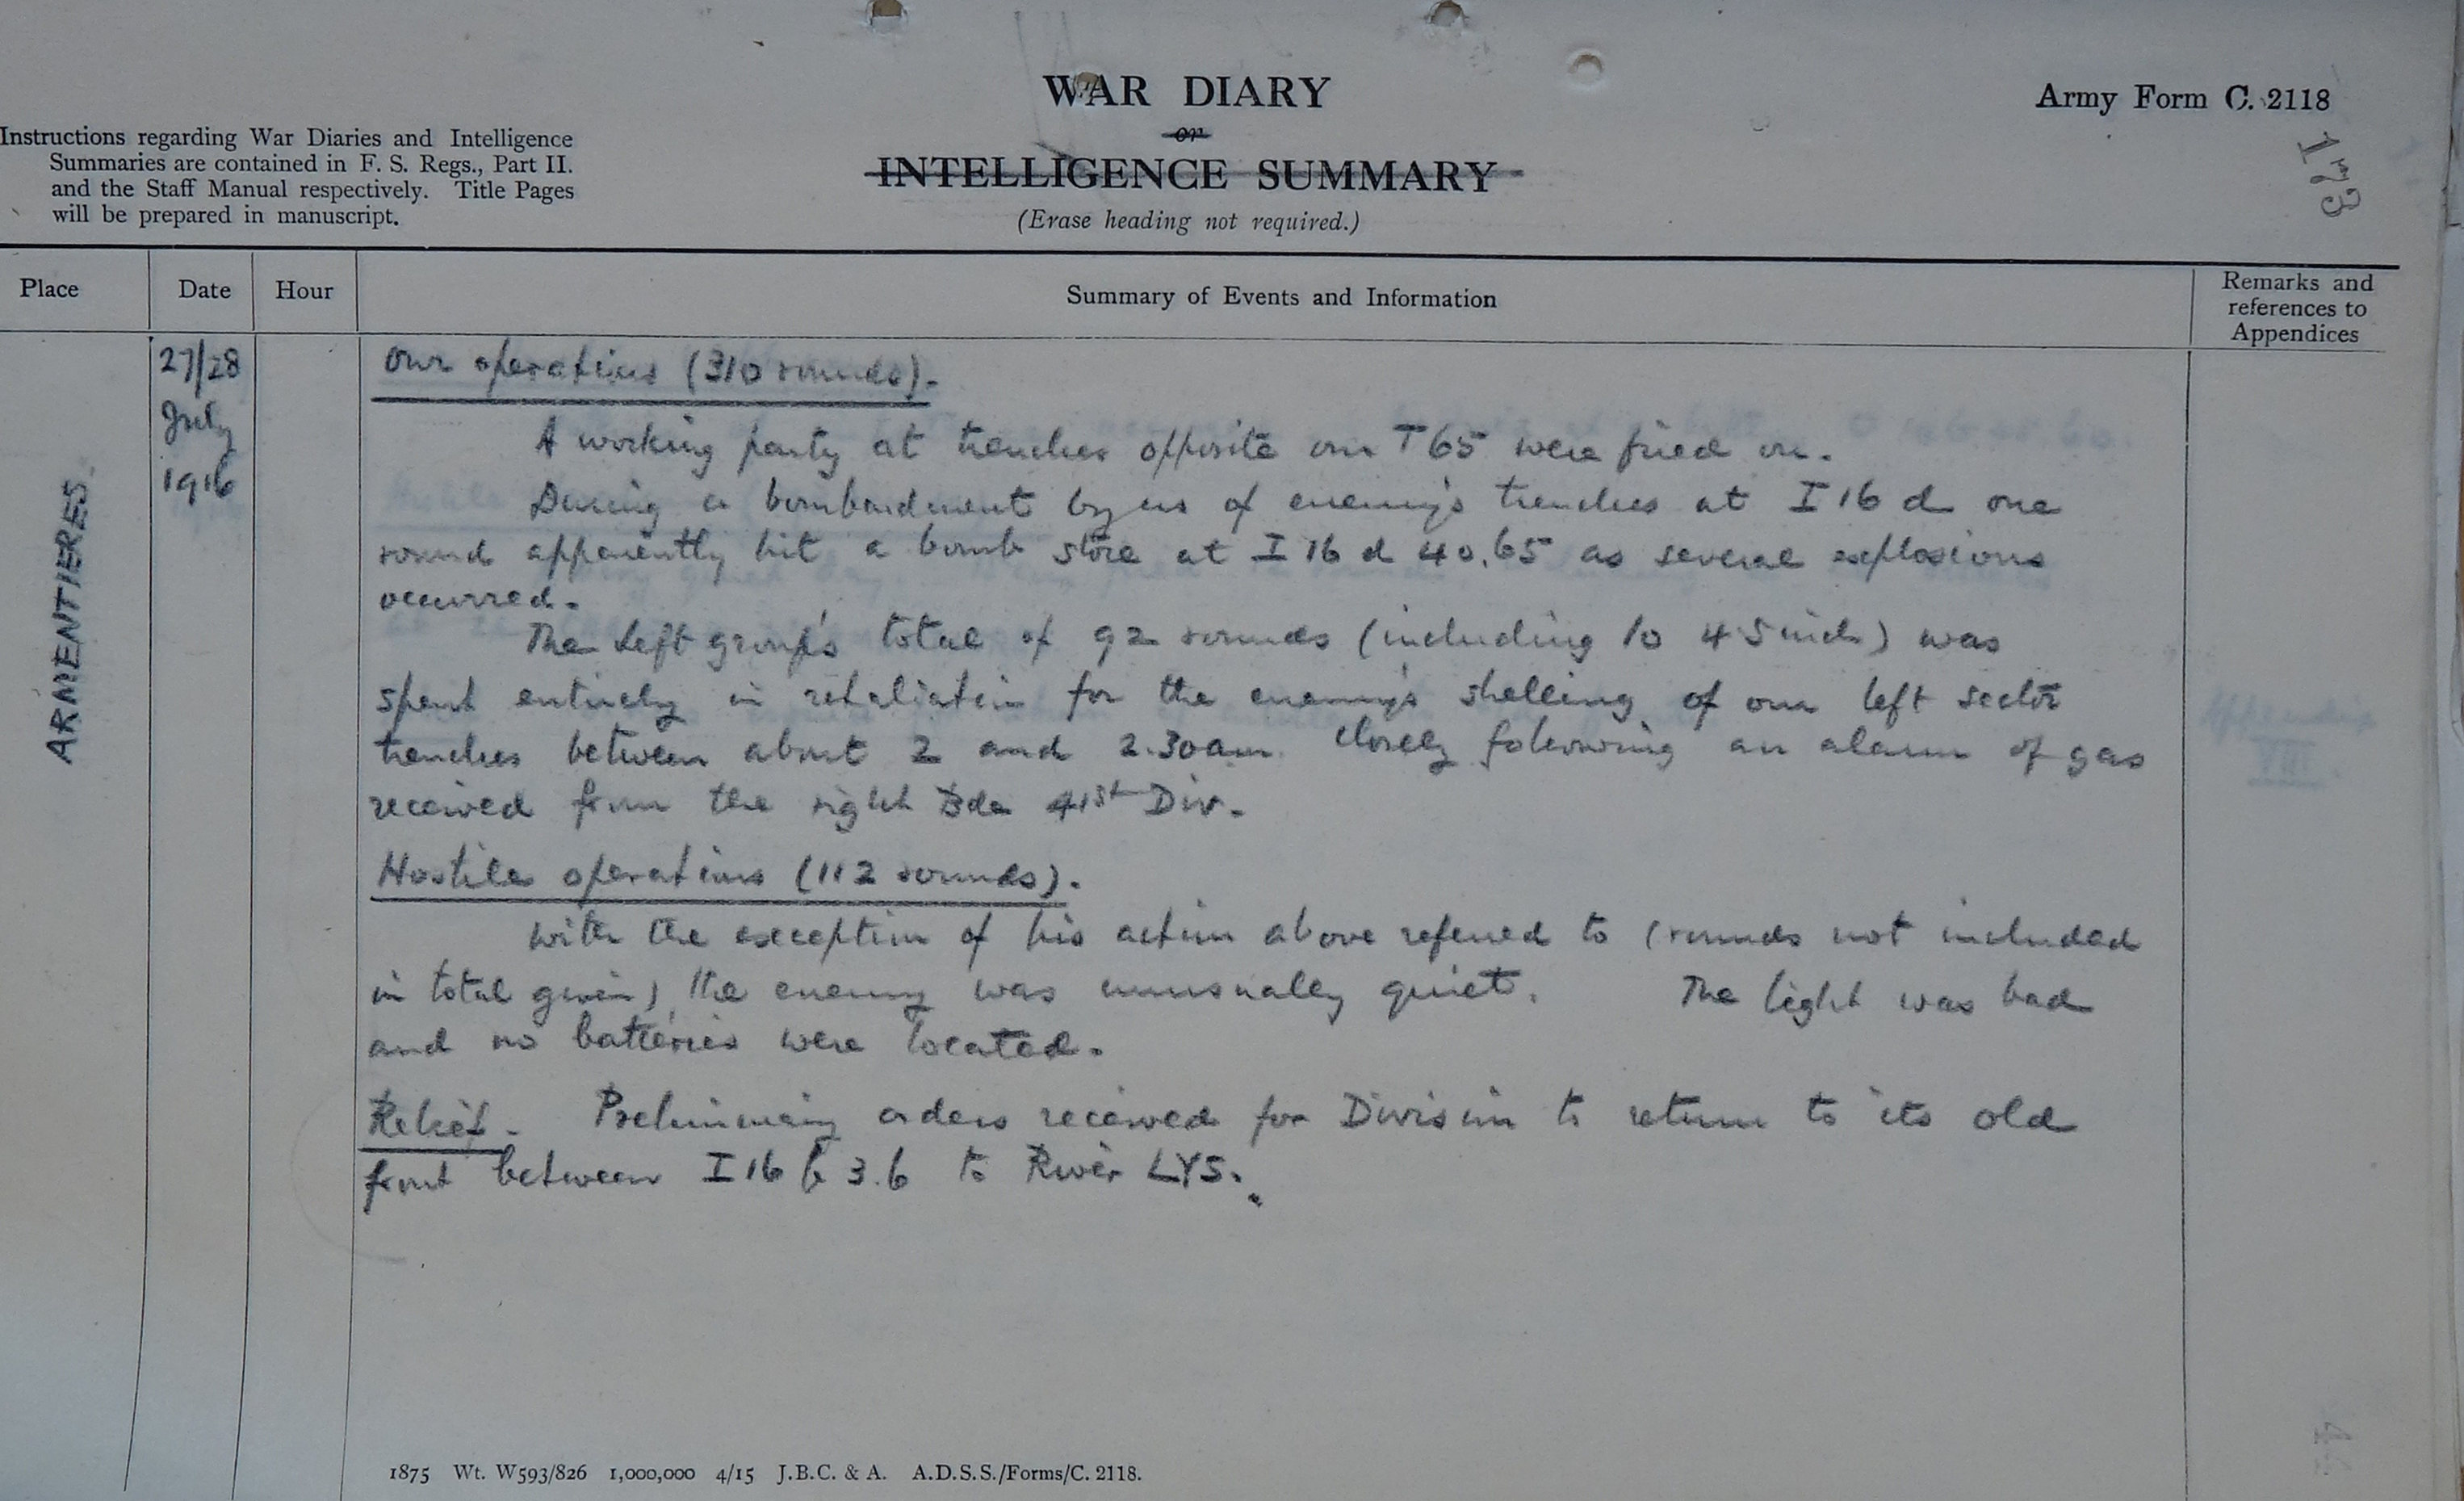 WAR DIARY
or
INTELLIGENCE SUMMARY
(Erase heading not required.)
Army Form C. 2118
173
Instructions regarding War Diaries and Intelligence
Summaries are contained in F. S. Regs., Part II.
and the Staff Manual respectively. Title Pages
will be prepared in manuscript.
Place
Date
Hour
Summary of Events and Information
Remarks and
references to
Appendices
ARMENTIERES.
27/28
July
1916
Our operations (310 rounds).
A working party at trenches opposite our T65 were fired on.
During a bombardment by us of enemy's trenches at I 16 d one
round apparently hit a bomb store at I 16 d 40.65 as several explosions
occurred.
The Left group's total of 92 rounds (including 10 4.5 inch) was
spent entirely in retaliation for the enemy's shelling of our left sector
trenches between about 2 and 2.30am. closely following an alarm of gas
received from the right Bde 41st Div.
Hostile operations (112 rounds).
With the exception of his action above referred to (rounds not included
in total given) the enemy was unusually quiet. The light was bad
and no batteries were located.
Relief. Preliminary orders received for Division to return to its old
front between I 16 b 3.6 to River LYS.
1875 Wt. W593/826 1,000,000 4/15 J.B.C. & A. A.D.S.S./Forms/C. 2118.